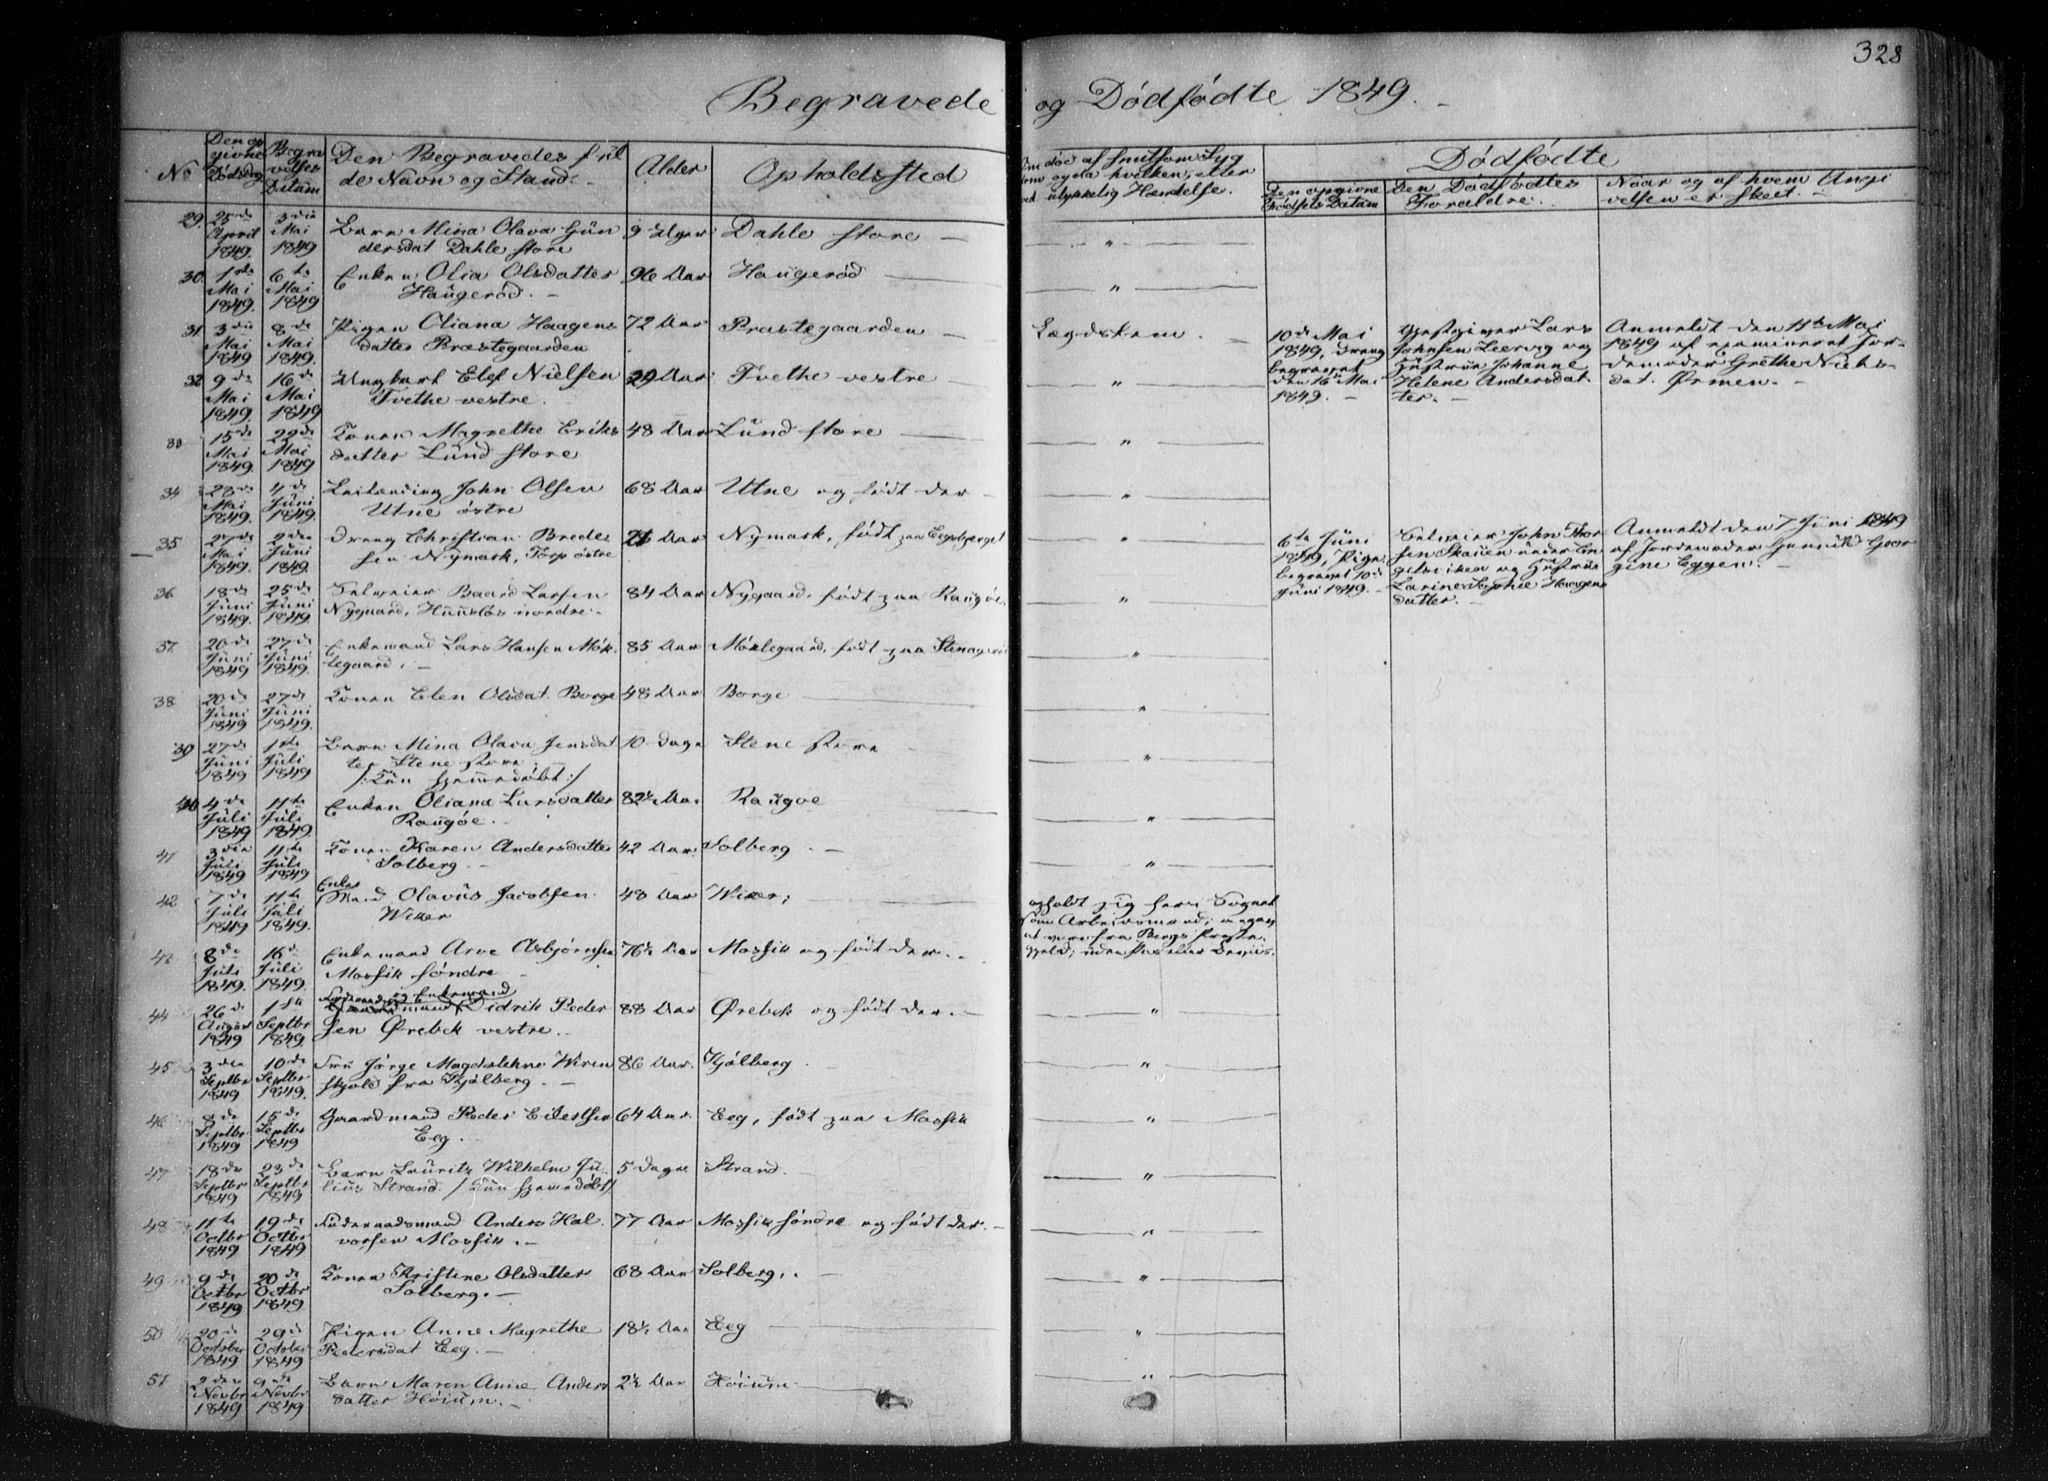 328
Begravede og Dödfödte 1849.
No
Den op
givne
Dödsdag
Begra
velses
Datum
Den Begravedes ful
de Navn og Stand.
Alder
Opholdssted
død af smitsom Syg
og da hvilken, eller
ulykkelig Hændelse.
Dödfödte
Den opgivne
Födsels Datum
Den Dödfödtes
Forældre.
Naar og af hvem Angi
velsen er skeet.
29. 25de April 1849. 3die Mai 1849 Barn Mina Olava Gün
dersdat Dahle store 9 Uger Dahle store "
30. 1ste Mai 1849. 6te Mai 1849 Enken Olia Olsdatter
Haugeröd. 96 Aar Haugeröd "
31 3die Mai 1849 8de Mai 1849. Pigen Oliana Haagens
datter Præstegaarden 72 Aar Præstegaarden Lægdslem.
10de Mai
1849, dreng
begravet
den 16de Mai
1849.
Gjestgiver Lars
Johnsen Leervig og
Hüstrue Johanne
Helene Andersdat
ter.
Anmeldt den 11te Mai
1849 af examineret Jor-
demoder Grethe Niels-
dat. Ørmen.
32 9de Mai 1849 16de Mai 1849 Ungkarl Elef Nielsen
Tvethe vestre. 29 Aar Tvethe vestre "
33 15de Mai 1849. 22de Mai 1849 Konen Magrethe Eriks
datter Lund store 48 Aar Lund store "
34 28de Mai 1849. 4de Juni 1849. John Olsen
Utne østre 68 Aar Utne og født der "
35 27de Mai 1849. 2den Juni 1849. Dreng Christian Brede
sen Nymark, Torp östre 21 Aar Nymark, født paa "
6te Juni
1849, Pige,
begravet 10de
Juni 1849.
Selveier John Thor
sen Skauen under En
gelsviken og Hüstrüe
Larine Sophie Haagens
datter.
Anmeldt den 7 Juni 1849
af Jordemoder Geor
gine Eggen.
36 18de Juni 1849. 25de Juni 1849. Selveier Baard Larsen
Nygaard, Huuslös nordre. 84 Aar Nygaard, født paa Raugöe. "
37. 20de Juni 1849 27de Juni 1849. Enkemand Lars Hansen Mök
legaard. 85 Aar Möklegaard, født paa "
38 20de Juni 1849 27de Juni 1849. Konen Elen Olsdat. Borge 48 Aar Borge "
39 27de Juni 1849 1ste Juli 1849 Barn Mina Olava Jensdat
ter Stene store
/: Kun hjemmedøbt :/ 10 dage Stene store "
40 4de Juli 1849 11te Juli 1849. Enken Oliana Larsdatter
Raugöe. 82½ Aar Raugöe "
41 3die Juli 1849 11te Juli 1849 Konen Karen Andersdatter
Solberg. 42 Aar. Solberg. "
42 7de Juli 1849 11te Juli 1849. Enke
Mand Olavus Jacobsen
Wiker 48 Aar Wiker;
opholdt sig her i Sognet
som Arbeidsmand;
fra Bergs Præste-
gjeld; uden Pas eller Beviis.
43 8de Juli 1849. 16de Juli 1849. Enkemand Arve Asbjörnsen
Mossik söndre 76½ Aar Mossik og født der.
44 26de August 1849 1ste Septbr 1849. og Enkemand Didrik Peder
sen Ørebek vestre. 88 Aar Ørebek og født der. "
45 3die Septbr 1849 10de Septbr 1849. Frü Jörge Magdalehne Wiren
skjold fra Kjölberg. 86 Aar. Kjölberg. "
46 Septbr 1849 15de Septbr 1849 Gaardmand Peder Eilertsen
Eeg. 64 Aar. Eeg, født paa Mossik "
47 18de Septbr 1849 23de Septbr 1849 Barn Lauritz Wilhelm Jü-
lius Strand. / Kun hjemmedøbt / 5 dage Strand. "
48 11te Octbr 1849 19de Octbr 1849 Föderaadsmand Anders Hal-
vorsen Mossik. 77 Aar Mossik söndre og født der. "
49 9de Octbr 1849 20de Octbr 1849. Konen Kristine Olsdatter
Solberg. 68 Aar Solberg. "
50 20de October 1849 29de October 1849 Pigen Anne Magrethe
Pedersdat Eeg. 18½ Aar Eeg "
51 2den Novbr 1849 9de Novbr 1849 Barn Maren Anne Anders
datter Höium. 2½ Aar Höium "